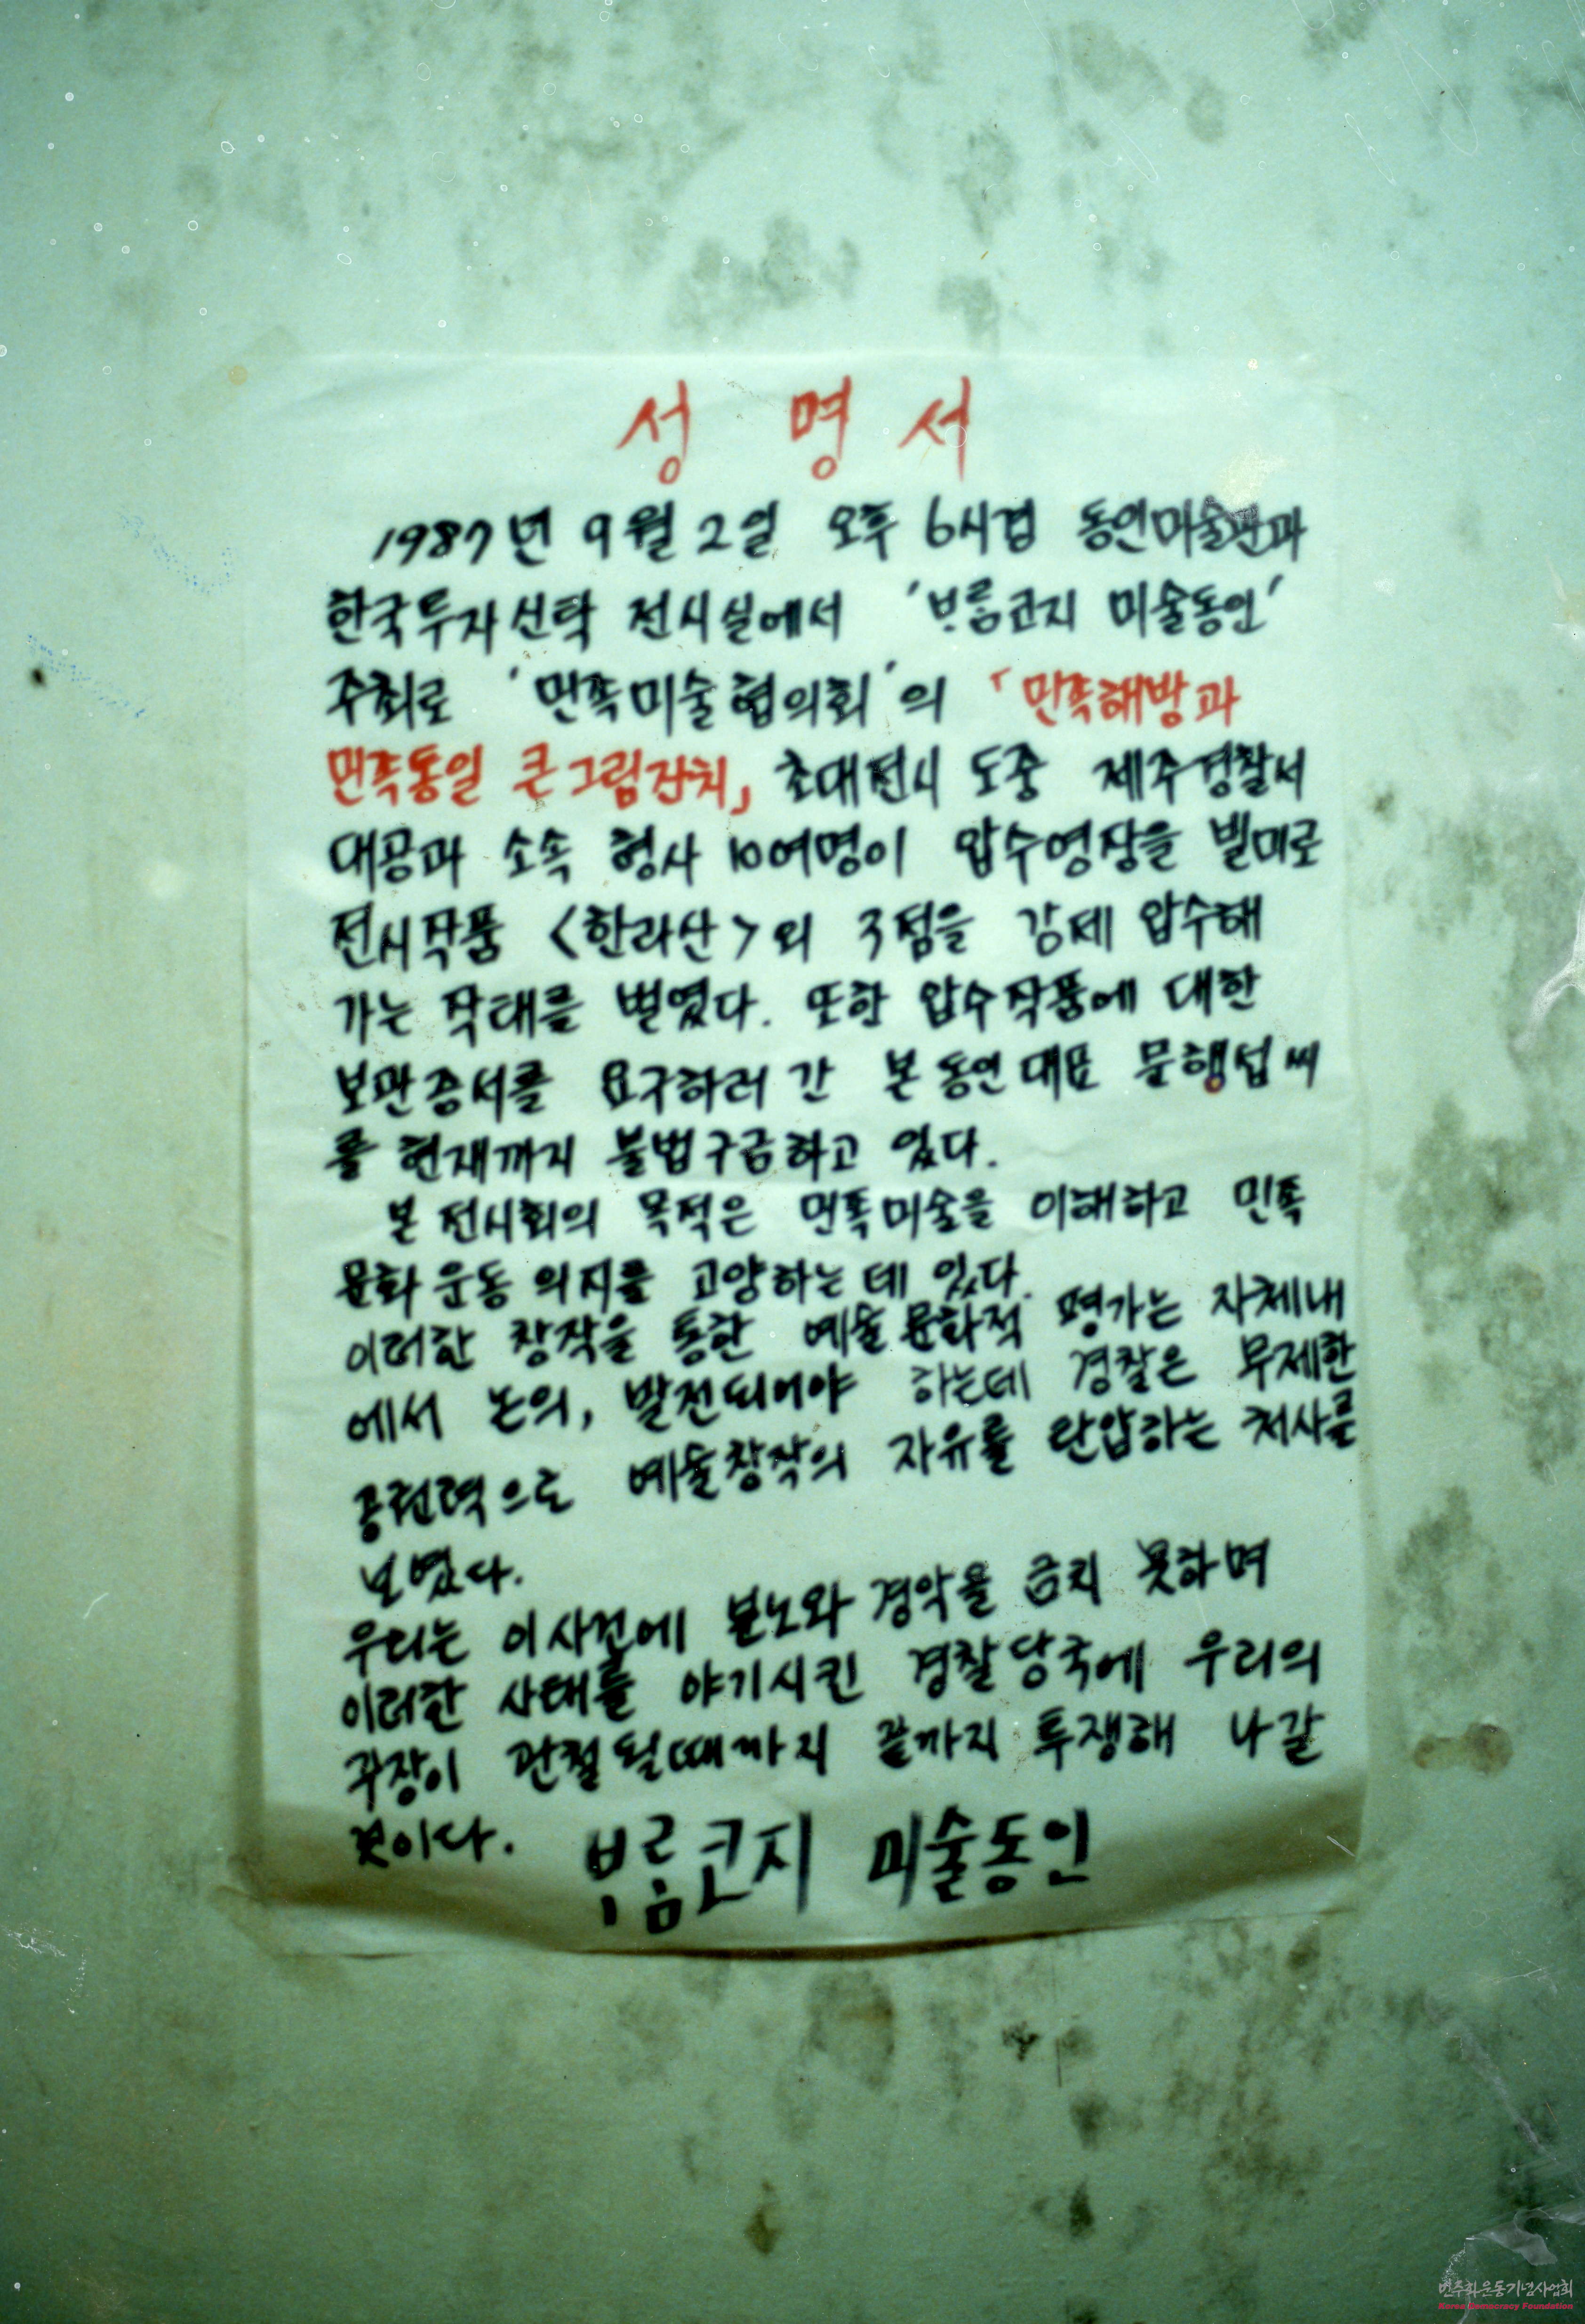 성 명 서
1987년 9월 2일 오후 6시경 동인미술관과
한국투자신탁 전시실에서 'ᄇᆞ름코지 미술동인'
주최로 '민족미술협의회'의 「민족해방과
민족통일 큰그림잔치」 초대전시 도중 제주경찰서
대공과 소속 형사 10여명이 압수영장을 빌미로
전시작품 <한라산>외 7점을 강제 압수해
가는 작태를 벌였다. 또한 압수작품에 대한
보관증서를 요구하러 간 본 동인대표 문행섭씨
를 현재까지 불법구금하고 있다.
본 전시회의 목적은 민족미술을 이해하고 민족
문화운동 의지를 고양하는데 있다.
이러한 창작을 통한 예술문화적 평가는 자체내
에서 논의, 발전되어야 하는데 경찰은 무제한
공권력으로 예술창작의 자유를 탄압하는 처사를
보였다.
우리는 이사건에 분노와 경악을 금치 못하며
이러한 사태를 야기시킨 경찰당국에 우리의
주장이 관철될때까지 끝까지 투쟁해 나갈
것이다. ᄇᆞ름코지 미술동인
민주화운동기념사업회
Korea Democracy Foundation